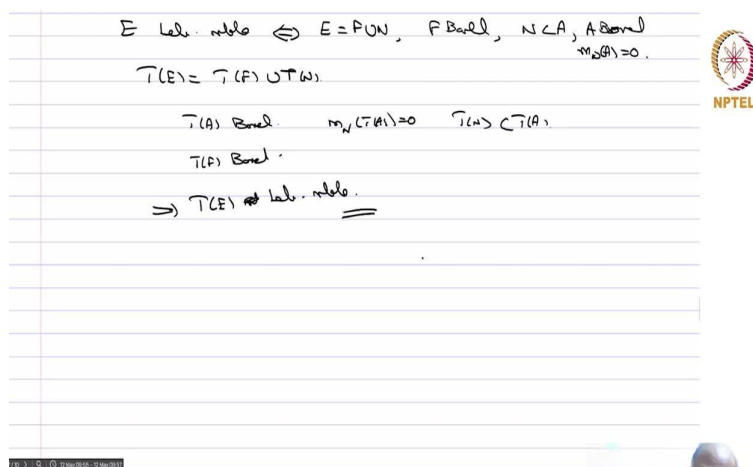 E Leb. mble ⇔ E = F∪N, F Borel, N⊂A, A Borel
m_N(A)=0.
NPTEL
T(E) = T(F) ∪ T(N)
T(A) Borel. m_N(T(A))=0 T(N) ⊂ T(A).
T(F) Borel.
⇒ T(E) Leb. mble.
12 May 09:55 - 12 May 09:57